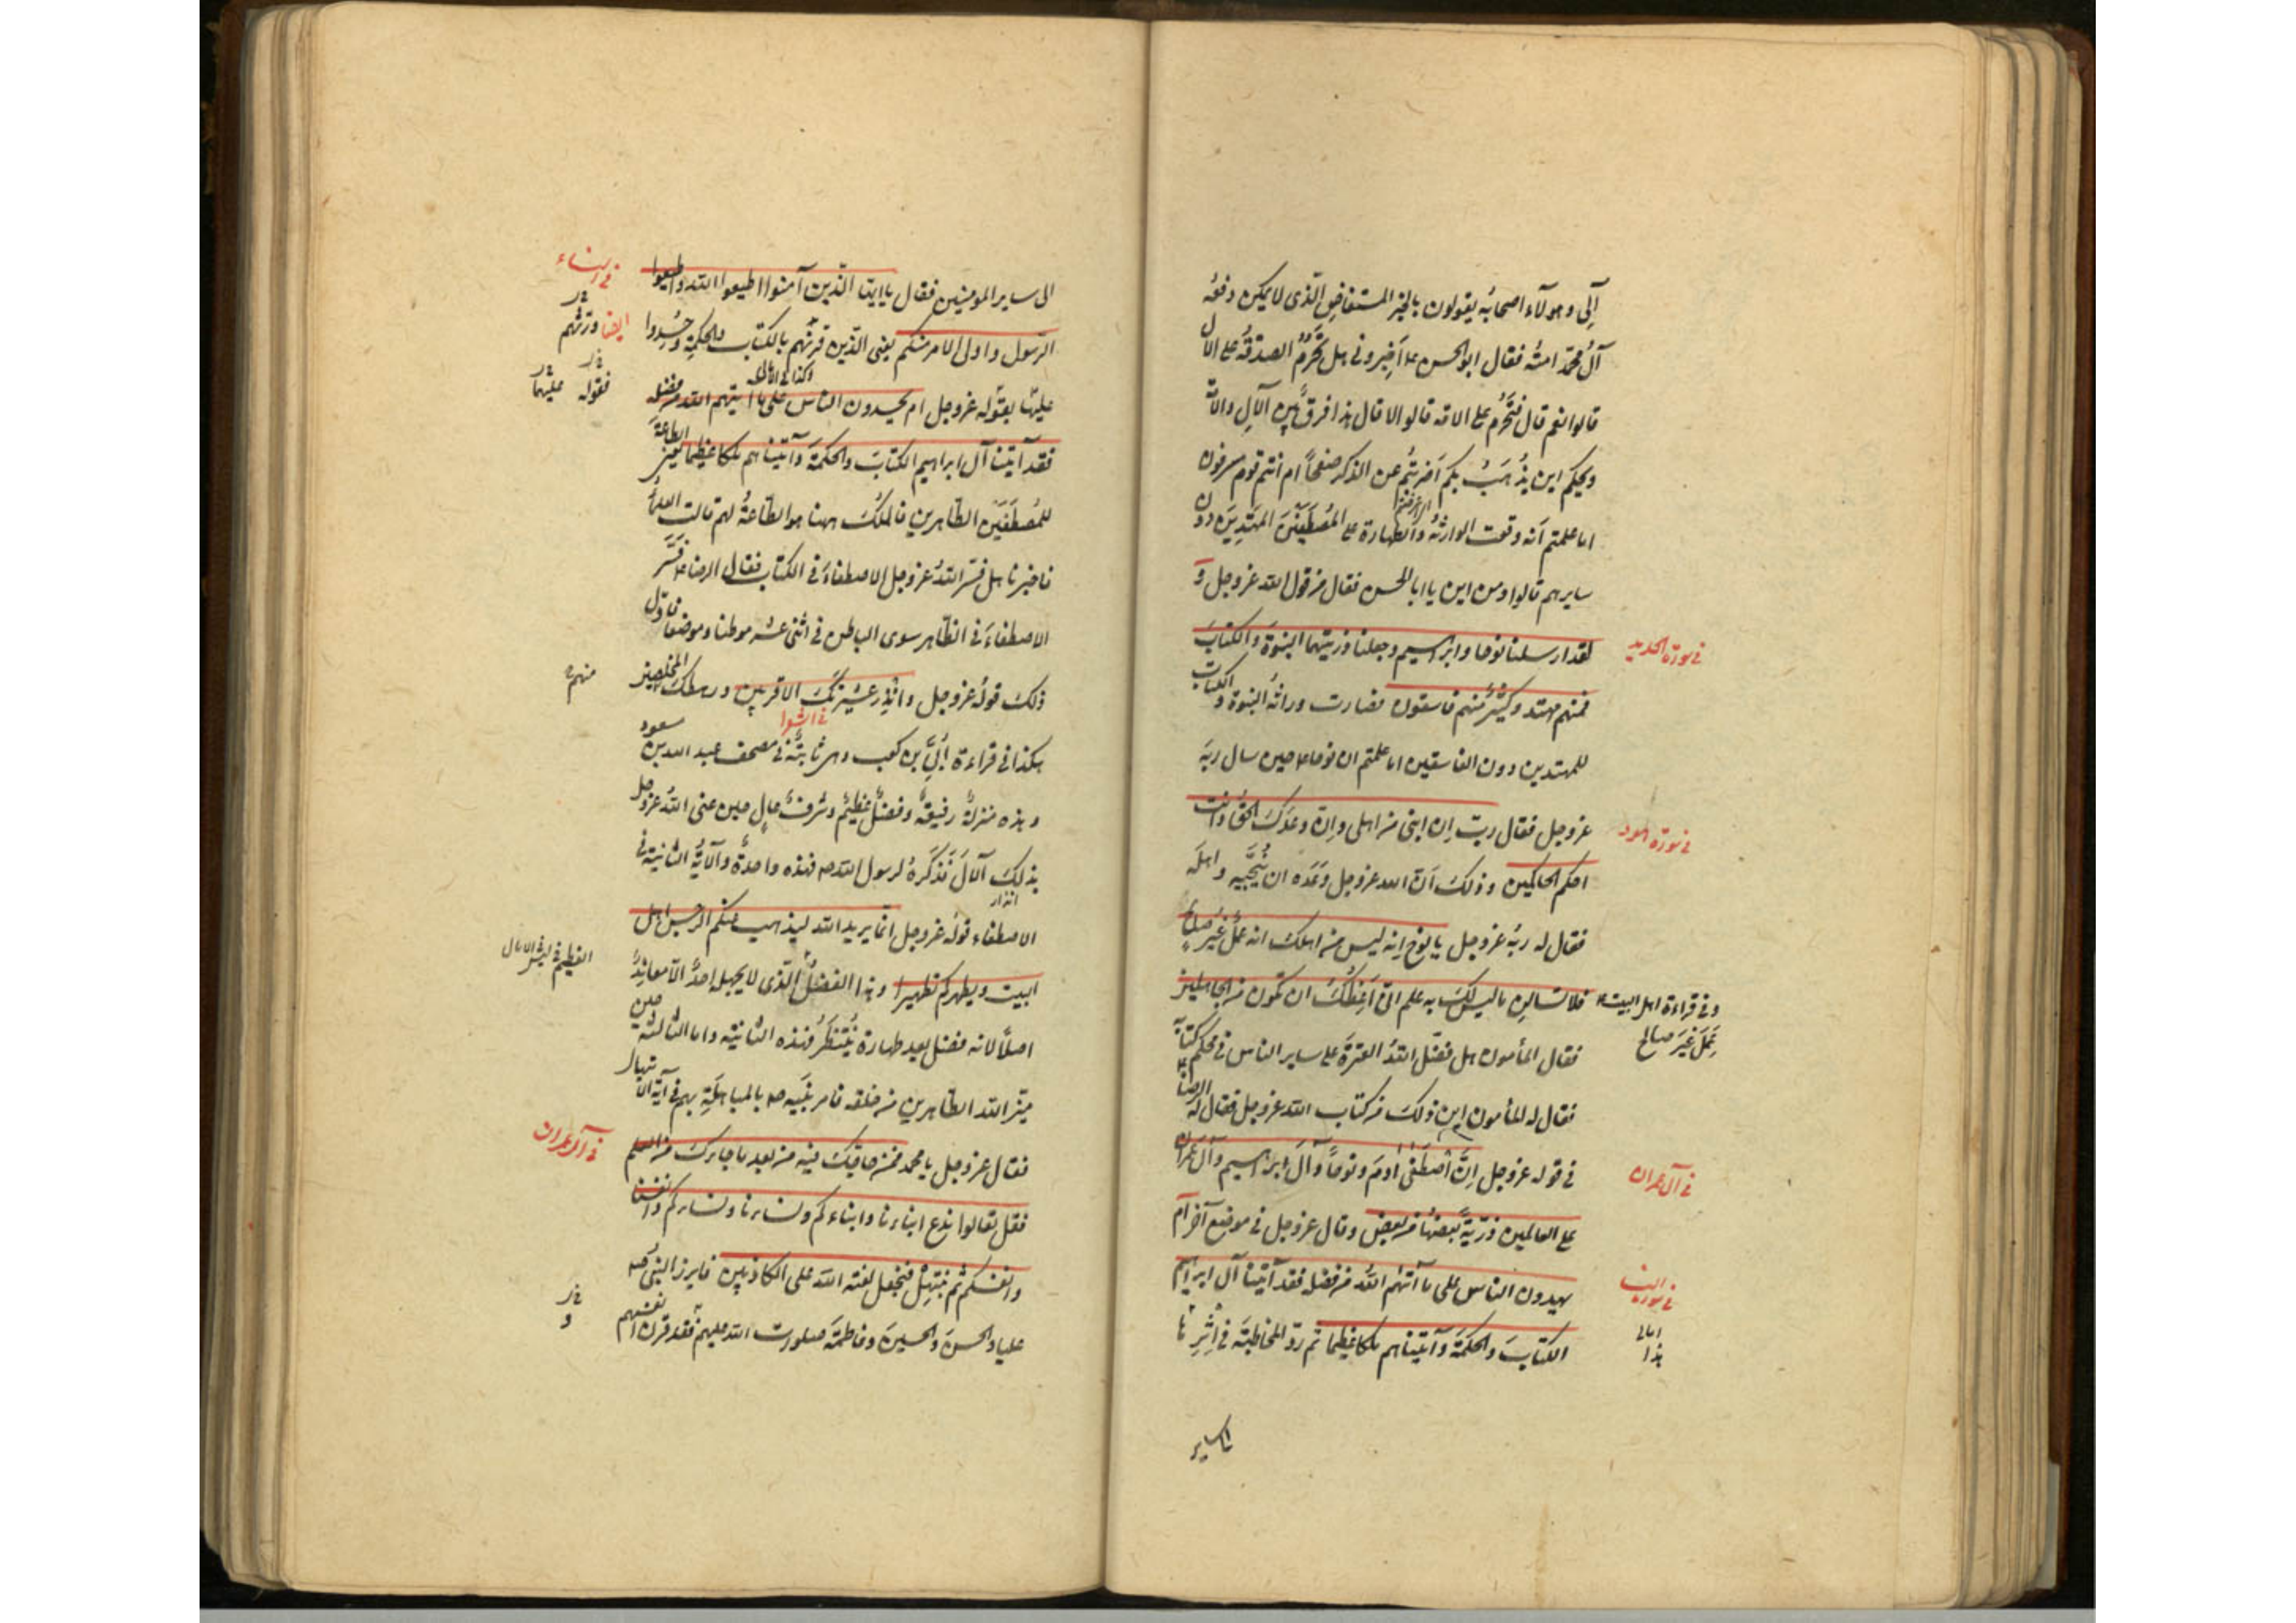 آلي وهولآء اصحابُه يقولون بالخبر المستفاضِ الّذى لا يمكن دفعُه
آلُ محمّد امتُه فقال ابو الحسن ع اَخبِرونى هل تَحرُمُ الصدقةُ على الآل
قالوا نعم قال فتَحرُم على الامّة قالوا لا قال هذا فرقٌ بين الآلِ والامّة
ويحكم اين يُذهَبُ بكم اَضربتُم عن الذكر صفحاً ام انتم قوم مسرفون
اما علمتم اَنه وقعت الوراثةُ والطهارة على المُصطَفَينَ المهتدِينَ دون
سايرهم قالوا ومن اين يا ابا الحسن فقال من قول الله عزوجل و
لقد ارسلنا نوحا وابراهيم وجعلنا ذريتهما النبوّةَ والكتابَ
فى سورة الحديد
فمنهم مهتد وكثيرٌ منهم فاسقون فصارت وراثةُ النبوة و الكتاب
للمهتدين دون الفاسقين اما علمتم ان نوحا ع حين سال ربّه
عزوجل فقال ربّ اِن ابنى من اهلى وانّ وعدَكَ الحقُّ وانت
فى سورة هود
احكم الحاكمين وذلكَ اَنّ الله عزوجل وَعَدَه ان يُنَجِّيه واهلَه
فقال له ربُه عزوجل يا نوح انه ليس من اهلك انه عملٌ غيرُ صالحٍ
فلا تسالنِ ما ليس لكَ به علم انّى اَعِظُكَ ان تكون من الجاهلين
وفى قراءة اهل البيت ع
عَمِلَ غيرَ صالح
فقال المأمون هل فضّل اللهُ العترةَ على ساير الناس فى محكم كتابه
فقال له المأمون اين ذلكَ من كتاب الله عزوجل فقال له الرضا ع
فى قوله عزوجل اِنَّ اصطفى ادمَ ونوحاً وآلَ ابراهيم وآلَ عمران
فى آل عمران
على العالمين ذرّيةً بعضُها من بعض وقال عزوجل فى موضع آخر اَم
يحسدون الناس على ما آتاهُم اللهُ من فضله فقد آتينا آل ابراهيم
الكتابَ والحكمةَ وآتيناهم ملكا عظيما ثم ردّ المخاطبَة فى اِثرِ
الى ساير المومنين فقال ياايها الذين آمنوا اطيعوا الله واطيعوا
الرسول واولى الامر منكم يعنى الذين قرنهم بالكتاب والحكمة وحُسِدوا
عليها بقوله عزوجل ام يحسدون الناس على ما آتيهم الله من فضله
فقوله عليهما
فقد آتينا آل ابراهيم الكتابَ والحكمةَ وآتيناهم ملكا عظيما يعنى الطاعةَ
للمُصطَفَينَ الطّاهرين فالملكُ ههنا هو الطّاعةُ لهم قالت العلماءُ
فاخبرنا هل فسّر اللهُ عزوجل الاصطفاءَ فى الكتاب فقال الرضا ع فَسَّرَ
الاصطفاءَ فى الظاهر سوى الباطن فى اثنى عشر موطنا وموضعا فاوّل
ذلكَ قولُه عزوجل وانذر عشيرتكَ الاقربين ورهطكَ المخلصين
منهم
هكذا فى قراءة اُبَىِّ بن كعب وهى ثابتةٌ فى مصحف عبد الله بن مسعود
وهذه منزلةٌ رفيعةٌ وفضلٌ عظيمٌ وشرفٌ عالٍ حين عنى اللهُ عزوجل
بذلكَ الآلَ فَذكرَهُ لرسول الله ص فهذه واحدةٌ والآيةُ الثانية فى
الاصطفاء قولُه عزوجل انما يريد الله ليذهب عنكم الرجس اهل
البيت ويطهركم تطهيرا وهذا الفضلُ الّذى لا يجهله احدٌ الّا معاندٌ
اصلًا لانه فضل بعد طهارة يُنتظَرُ فهذه الثانية واما الثالثة حين
ميّز الله الطاهرين من خلقه فامر نبيَه ص بالمباهلةِ بهم فى آية الابتهال
فقال عزوجل يا محمد فمن حاجّك فيه من بعد ما جاءكَ من العلم
فى آل عمران
فقل تعالوا ندع ابناءنا وابناءكم ونساءنا ونساءكم وانفسنا
وانفسكم ثم نبتهِلْ فنجعل لعنة الله على الكاذبين فابرز النبىُّ ص
عليا والحسنَ والحسينَ وفاطمةَ صلوات الله عليهم فقد قرن انفسهم